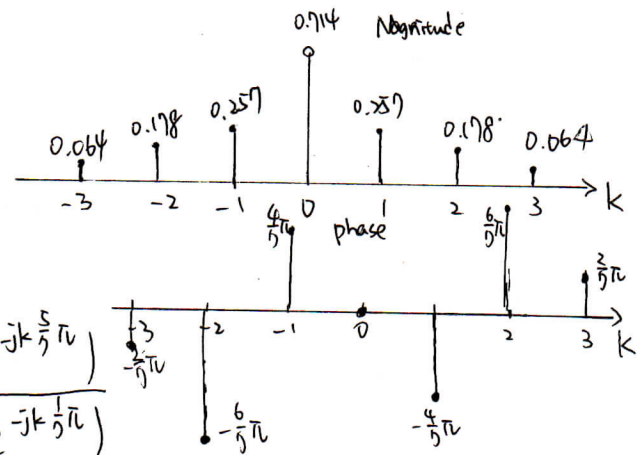 0.714 Magnitude
0.064 0.178 0.257 0.257 0.178 0.064
-3 -2 -1 0 1 2 3 k
4/7π phase 6/7π 2/7π
-3 -2 -1 0 2 3 k
-2/7π -6/7π -4/7π
-jk 5/7 π )
-jk 1/7 π )